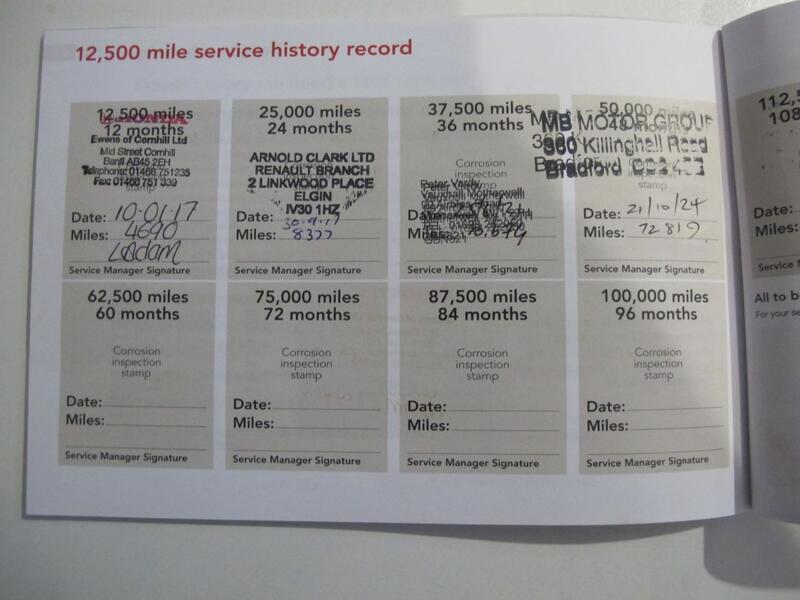 12,500 mile service history record
12,500 miles
12 months
HONDA
Ewens of Cornhill Ltd
Mid Street Cornhill
Banff AB45 2EH
Telephone: 01466 751235
Fax: 01466 751 339
Date: 10-01-17
Miles: 4690
Service Manager Signature
25,000 miles
24 months
ARNOLD CLARK LTD
RENAULT BRANCH
2 LINKWOOD PLACE
ELGIN
IV30 1HZ
Date: 30-9-17
Miles: 8377
Service Manager Signature
37,500 miles
36 months
Corrosion
inspection
Peter Vardy
Vauxhall Motherwell
Service Manager Signature
50,000 miles
MB MOTOR GROUP
360 Killinghall Road
Bradford
stamp
Date: 21/10/24
Miles: 72819
Service Manager Signature
62,500 miles
60 months
Corrosion
inspection
stamp
Date:
Miles:
Service Manager Signature
75,000 miles
72 months
Corrosion
inspection
stamp
Date:
Miles:
Service Manager Signature
87,500 miles
84 months
Corrosion
inspection
stamp
Date:
Miles:
Service Manager Signature
100,000 miles
96 months
Corrosion
inspection
stamp
Date:
Miles:
Service Manager Signature
112,5
108
Date:
Miles:
Service M
All to b
For your se